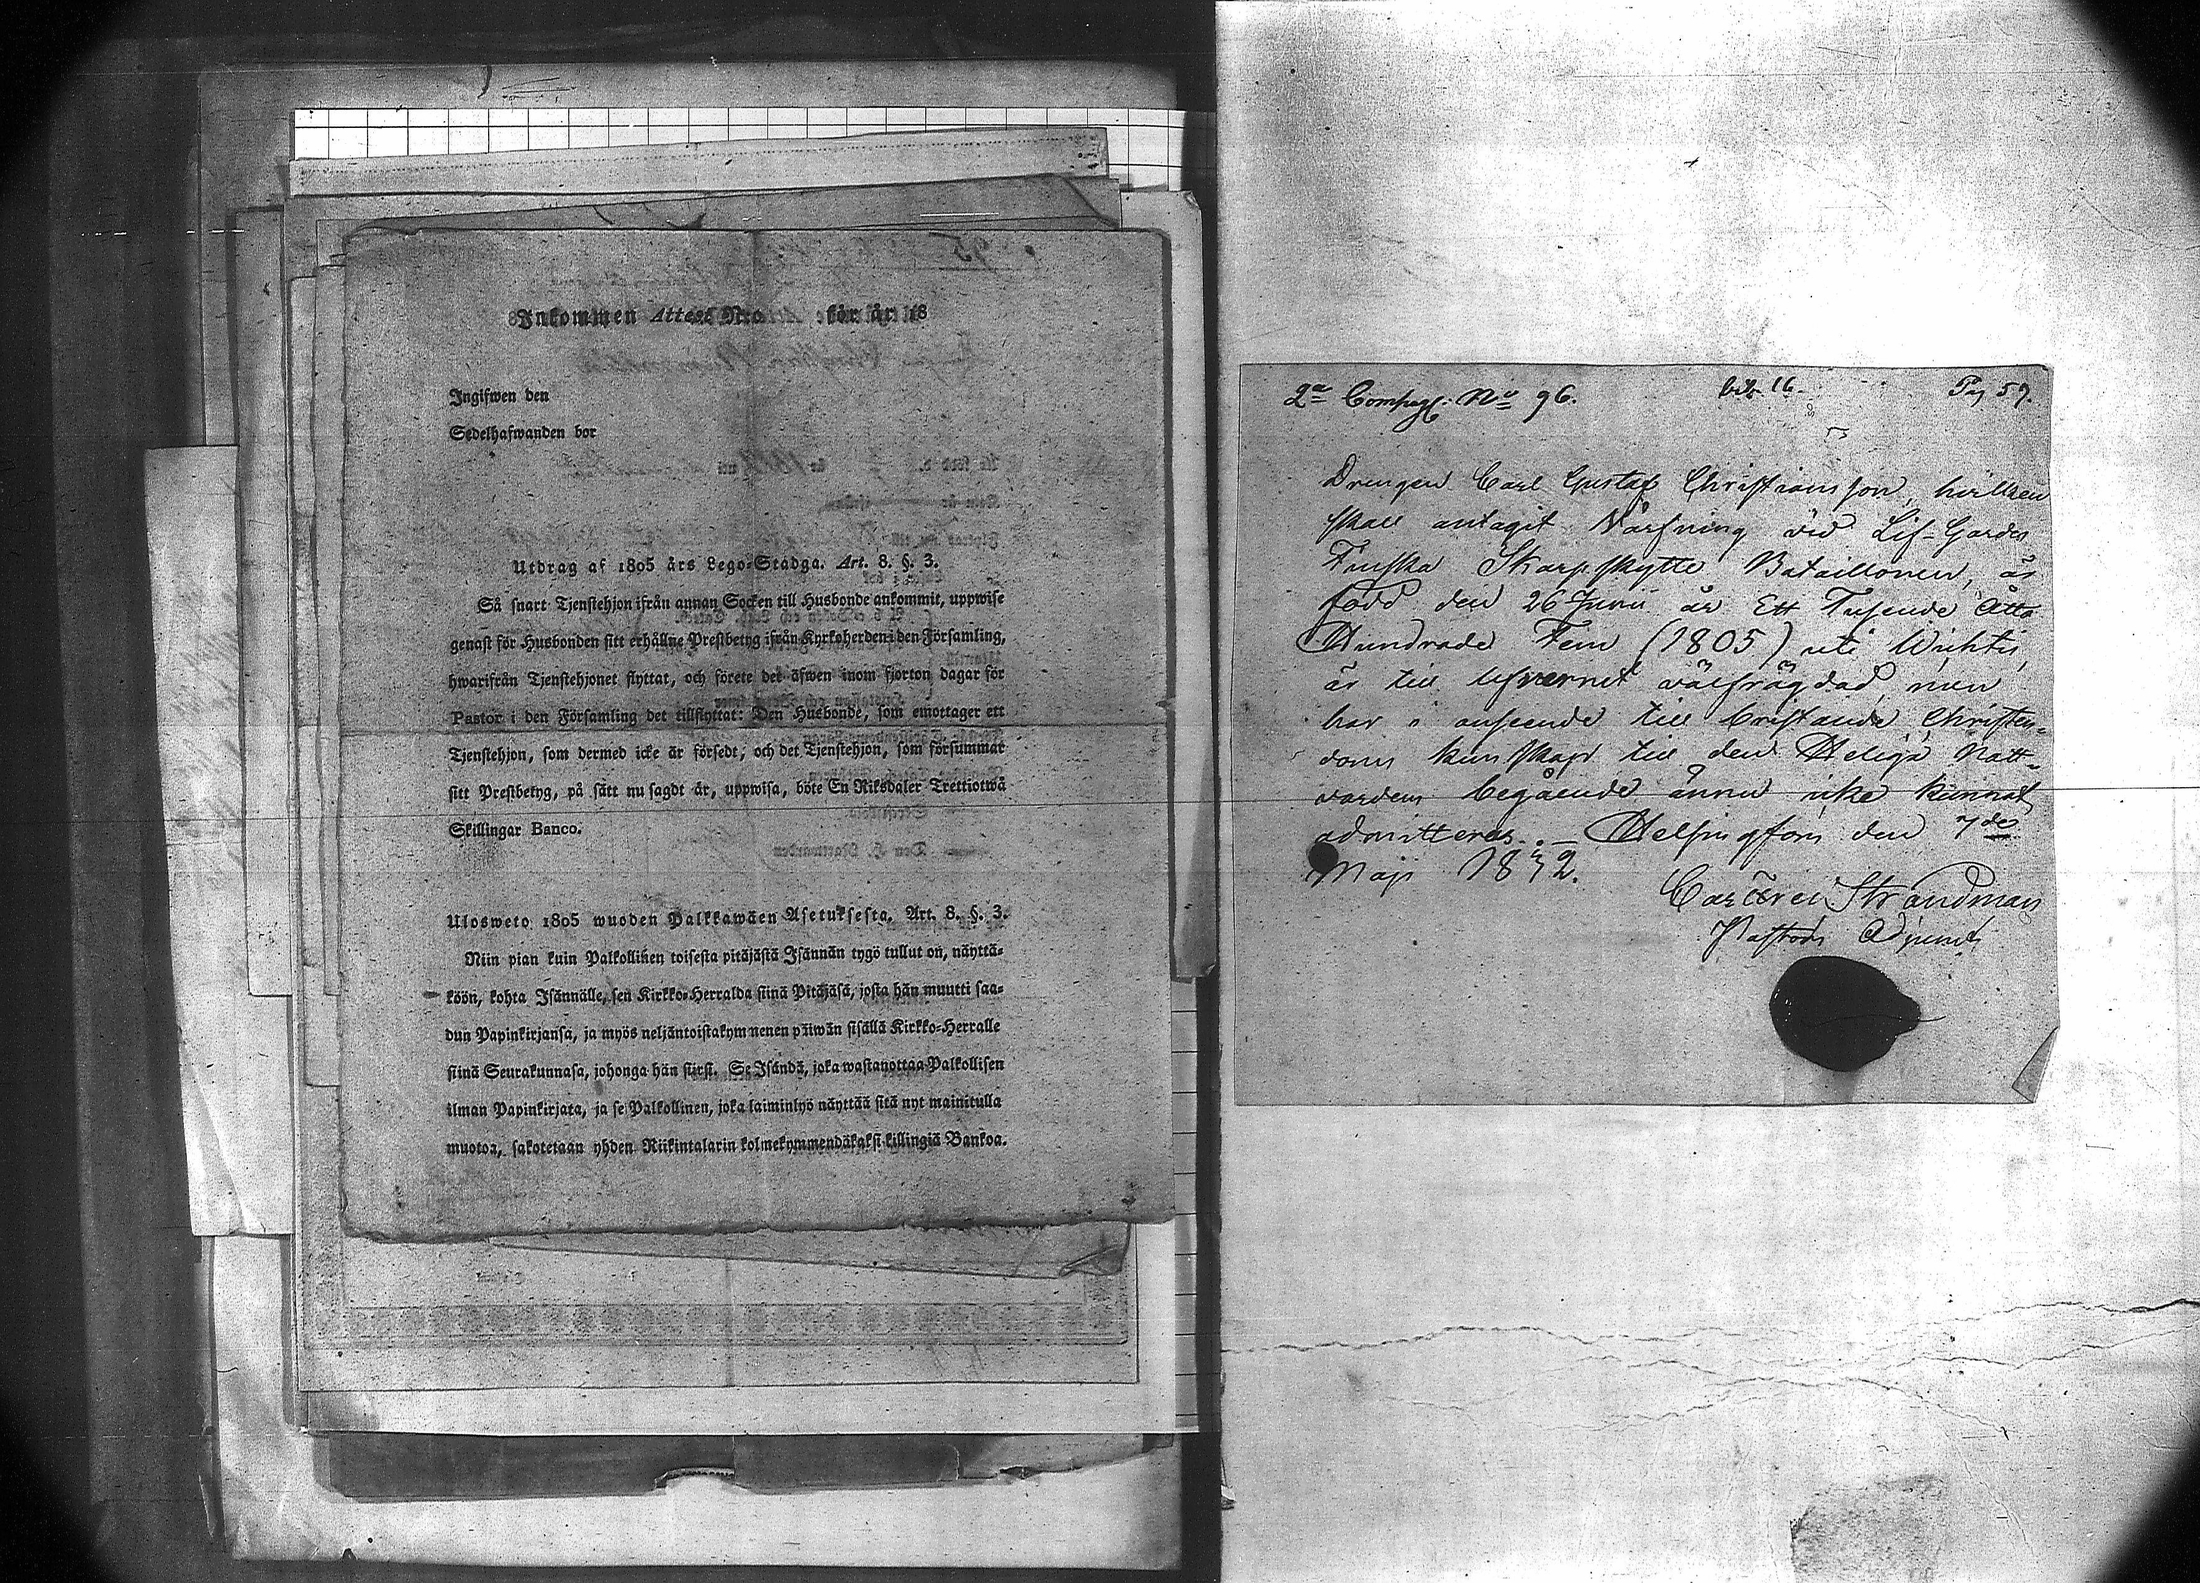 Inkommen Attest Nro för år 18
Ingifwen den
Sedelhafwanden bor
Utdrag af 1805 års Lego-Stadga. Art. 8. §. 3.
Så snart Tjenstehjon ifrån annan Socken till Husbonde ankommit, uppwise
genast för Husbonden sitt erhållne Prestbetyg ifrån Kyrkoherden i den Församling,
hwarifrån Tjenstehjonet flyttat, och förete det äfwen inom fjorton dagar för
Pastor i den Församling det tillflyttat: Den Husbonde, som emottager ett
Tjenstehjon, som dermed icke är försedt, och det Tjenstehjon, som försummar
sitt Prestbetyg, på sätt nu sagdt är, uppwisa, böte En Riksdaler Trettiotwå
Skillingar Banco.
Ulosweto 1805 wuoden Palkkawäen Asetuksesta. Art. 8. §. 3.
Niin pian kuin Palkollinen toisesta pitäjästä Isännän tygö tullut on, näyttä-
köön, kohta Isännälle, sen Kirkko-Herralda siinä Pitäjäsä, josta hän muutti saa-
dun Papinkirjansa, ja myös neljäntoistakymnenen päiwän sisällä Kirkko-Herralle
siinä Seurakunnasa, johonga hän siirst. Se Isändä, joka wastanottaa Palkollisen
ilman Papinkirjata, ja se Palkollinen, joka laiminlyö näyttää sitä nyt mainitulla
muotoa, sakotetaan yhden Riikintalarin kolmekymmendäkaksi killingiä Bankoa.
2a Compagf: No 96. bit. 16. Pag 59.
Drengen Carl Gustaf Christiansson, hvilken
skall antagit Värfning vid Lif-Gardes
Finska Skarpskytte Bataillonen, är
född den 26 Junii år Ett Tusende Åtta
Hundrade Fem (1805) uti Wichtis,
är till lefvernet välfrägdad, men
har i anseende till bristande Christen=
doms kunskap till den Heliga Natt=
vardens begående ännu icke kunnat
admitteras. – Helsingfors den 7de
Maji 1832.
Strandman
Pastors Adjunct